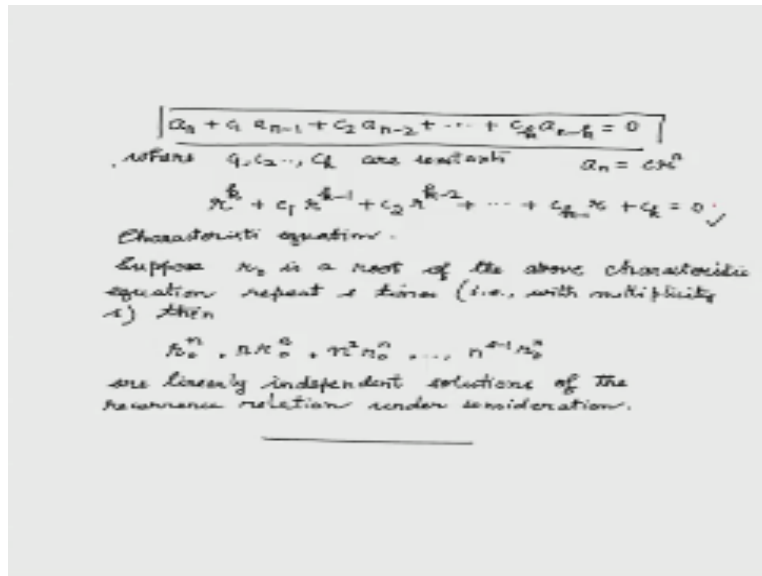 aₙ + c₁ aₙ₋₁ + c₂ aₙ₋₂ + ⋯ + cₖ aₙ₋ₖ = 0
where c₁, c₂ .., cₖ are constants aₙ = crⁿ
rᵏ + c₁ rᵏ⁻¹ + c₂ rᵏ⁻² + ⋯ + cₖ₋₁ r + cₖ = 0
Characteristic equation.
Suppose r₀ is a root of the above characteristic
equation repeat s times (i.e., with multiplicity
s) then
r₀ⁿ, n r₀ⁿ, n² r₀ⁿ, ..., nˢ⁻¹ r₀ⁿ
are linearly independent solutions of the
recurrence relation under consideration.